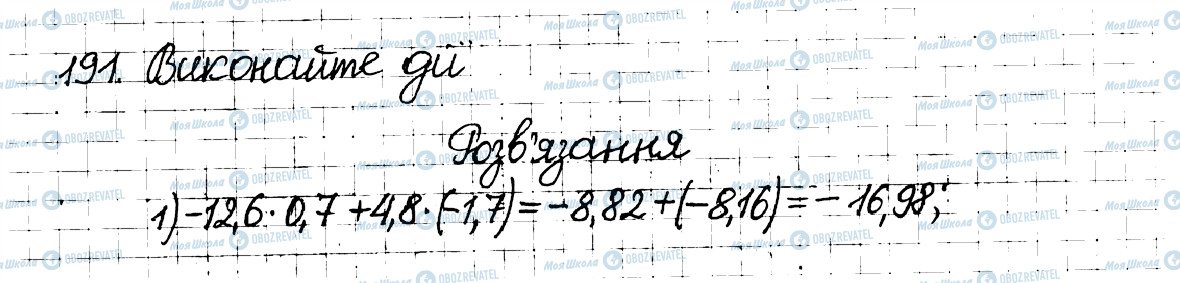 191. Виконайте дії
Розв'язання
1) -12,6 · 0,7 + 4,8 · (-1,7) = -8,82 + (-8,16) = - 16,98;